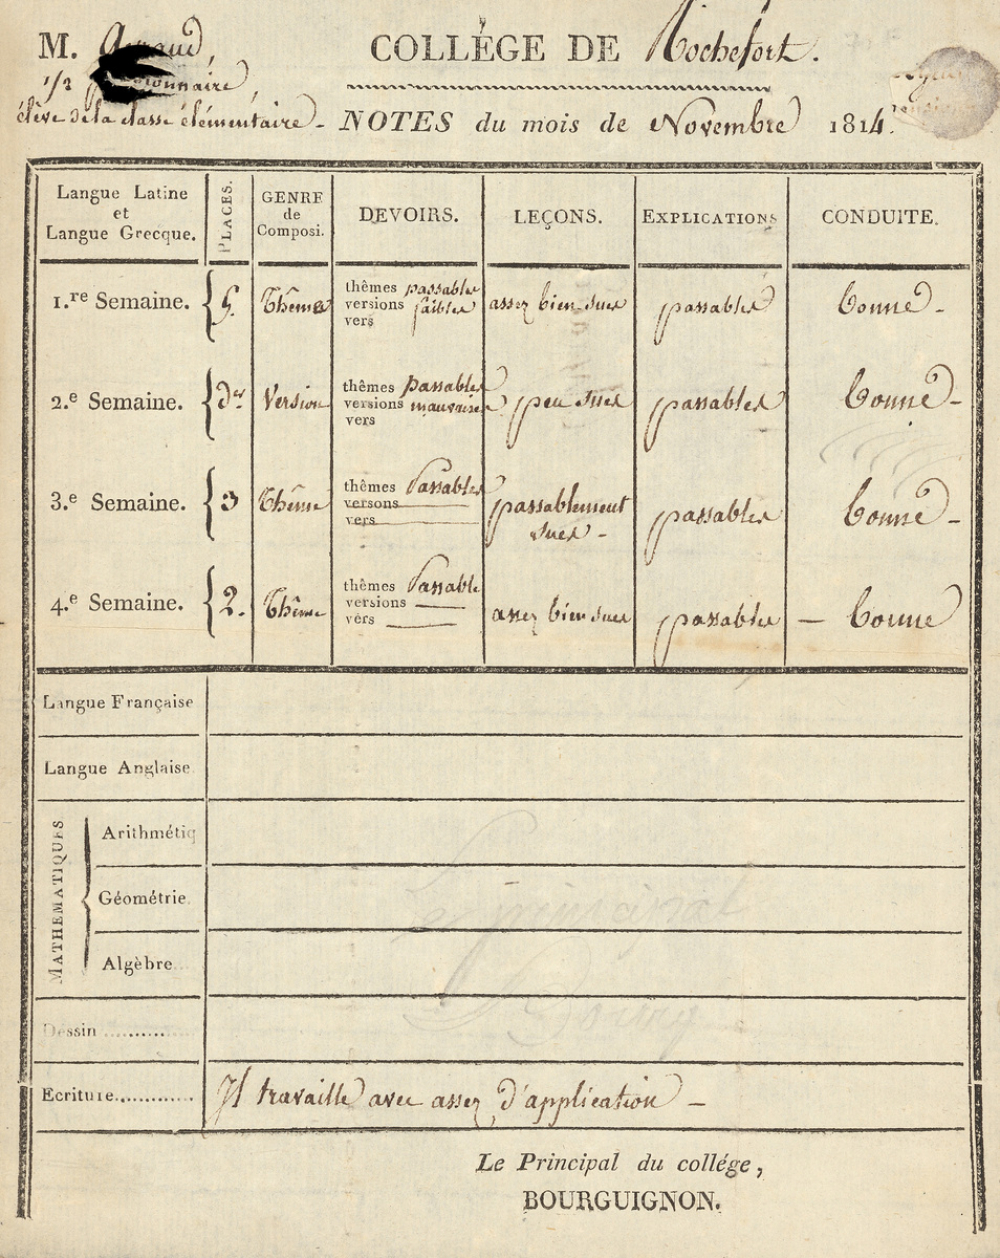 M.
COLLÉGE DE Rochefort.
1/2
élève de la classe élémentaire - NOTES du mois de Novembre 1814.
Langue Latine
et
Langue Grecque.
PLACES.
GENRE
de
Composi.
DEVOIRS.
LEÇONS.
EXPLICATIONS
CONDUITE.
1.re Semaine. { 5. Thême
thêmes passables
versions faibles
vers
assez bien sues
passables
bonne -
2.e Semaine. { der Version
thêmes passables
versions mauvaises
vers
peu sues
passables
bonne -
3.e Semaine. { 3 Thême
thêmes Passables
versons
vers
passablement
sues -
passables
bonne -
4.e Semaine. { 2. Thême
thêmes Passable
versions
vers
assez bien sues
passables
- bonne
Langue Française
Langue Anglaise
MATHEMATIQUES
Arithmétiq
Géométrie
Algèbre
Dessin ..........
Ecriture............ Il travaille avec assez d'application -
Le Principal du collége,
BOURGUIGNON.